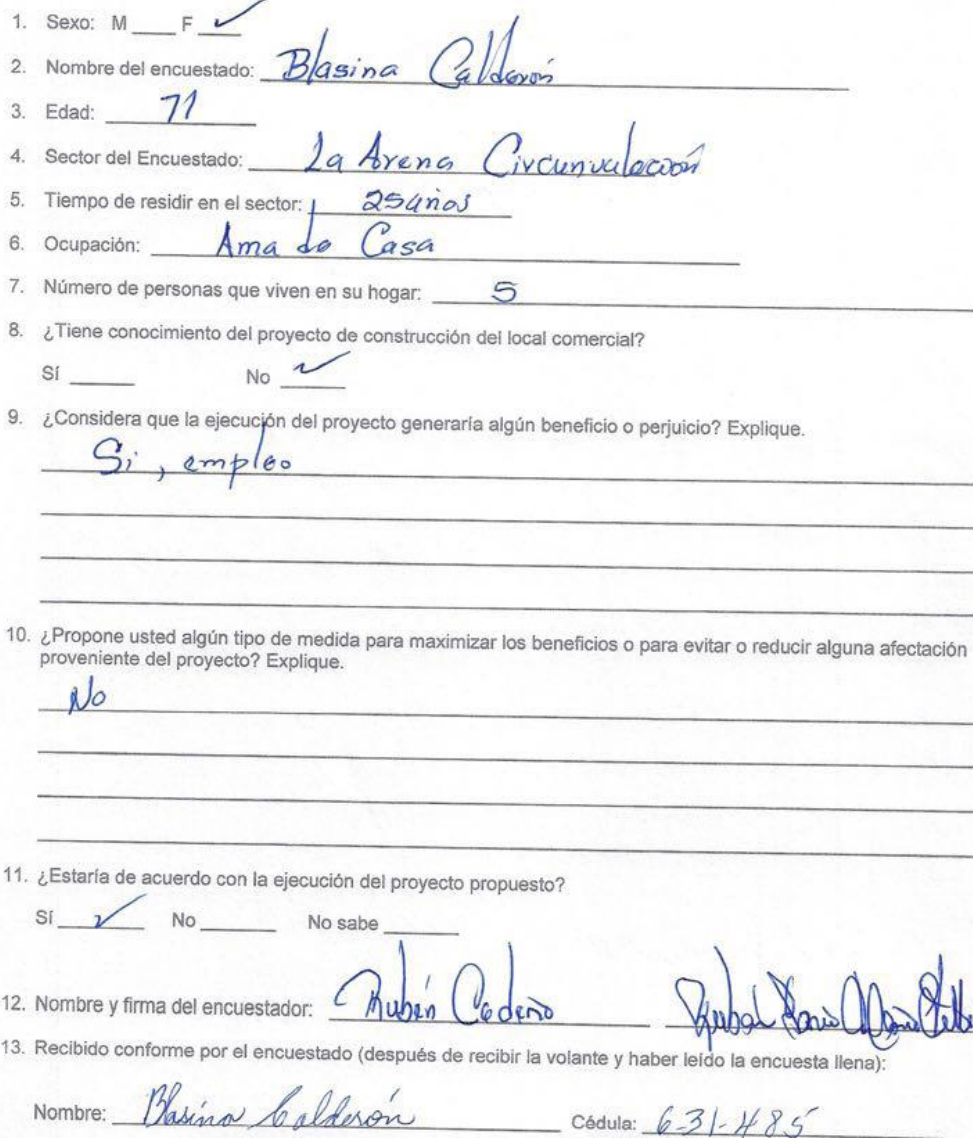 1. Sexo: M ____ F ✓
2. Nombre del encuestado: Blasina Calderón
3. Edad: 71
4. Sector del Encuestado: La Arena Circunvalación
5. Tiempo de residir en el sector: 25 años
6. Ocupación: Ama de Casa
7. Número de personas que viven en su hogar: 5
8. ¿Tiene conocimiento del proyecto de construcción del local comercial?
Sí ____ No ✓
9. ¿Considera que la ejecución del proyecto generaría algún beneficio o perjuicio? Explique.
Si, empleo
10. ¿Propone usted algún tipo de medida para maximizar los beneficios o para evitar o reducir alguna afectación
proveniente del proyecto? Explique.
No
11. ¿Estaría de acuerdo con la ejecución del proyecto propuesto?
Sí ✓ No ____ No sabe ____
12. Nombre y firma del encuestador: Rubén Cedeño
13. Recibido conforme por el encuestado (después de recibir la volante y haber leído la encuesta llena):
Nombre: Blasina Calderón Cédula: 6-31-485